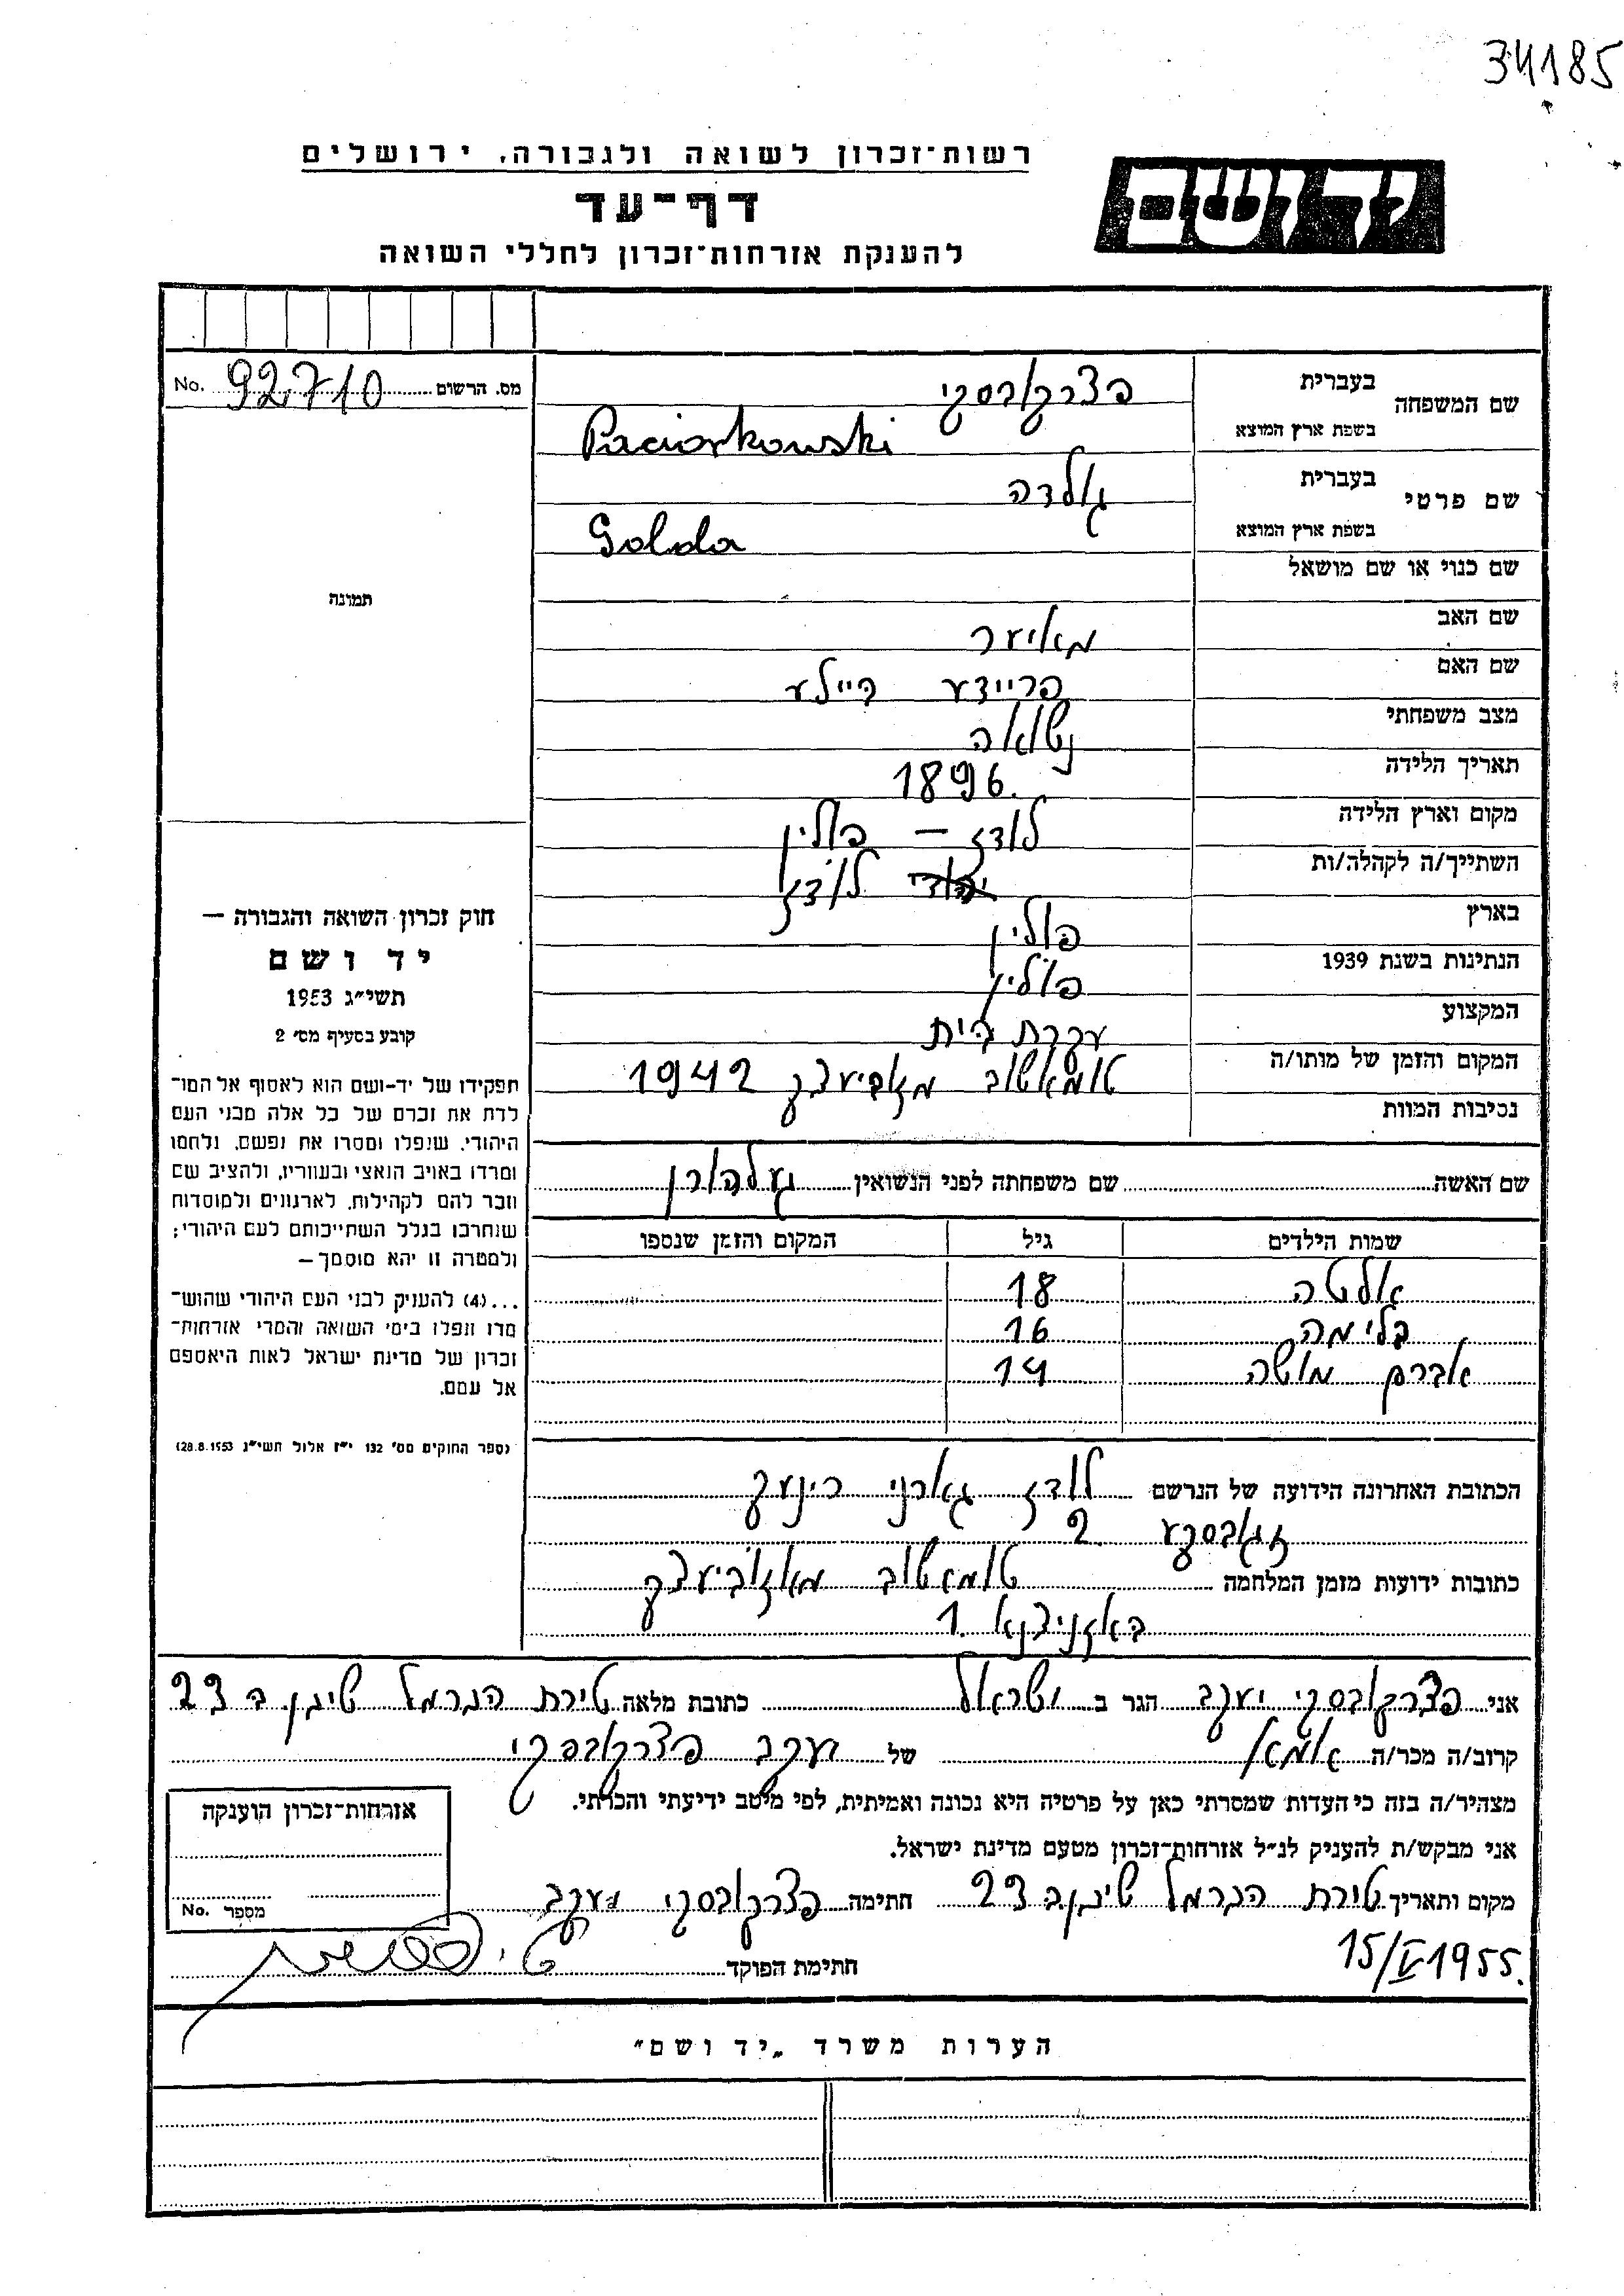 34185
רשות־זכרון לשואה ולגבורה, ירושלים
יד ושם
דף־עד
להענקת אזרחות־זכרון לחללי השואה
מס. הרשום 92710 No.
תמונה
חוק זכרון השואה והגבורה —
יד ושם
תשי״ג 1953
קובע בסעיף מס׳ 2
תפקידו של יד-ושם הוא לאסוף אל המו־
לדת את זכרם של כל אלה מבני העם
היהודי, שנפלו ומסרו את נפשם, נלחמו
ומרדו באויב הנאצי ובעוזריו, ולהציב שם
וזכר להם לקהילות, לארגונים ולמוסדות
שנחרבו בגלל השתייכותם לעם היהודי;
ולמטרה זו יהא מוסמך—
...(4) להעניק לבני העם היהודי שהוש־
מדו ונפלו בימי השואה והמרי אזרחות־
זכרון של מדינת ישראל לאות היאספם
אל עמם.
(ספר החוקים מס׳ 132 י״ז אלול תשי״ג 28.8.1953)
שם המשפחה
בעברית פצרקובסקי
בשפת ארץ המוצא Paciorkowski
שם פרטי
בעברית גולדה
בשפת ארץ המוצא Golda
שם כנוי או שם מושאל
שם האב מאיער
שם האם פריידע ביילע
מצב משפחתי נשואה
תאריך הלידה 1896.
מקום וארץ הלידה לודז — פולין
השתייך/ה לקהלה/ות לודז
בארץ פולין
הנתינות בשנת 1939 פולין
המקצוע עקרת בית
המקום והזמן של מותו/ה טומאשוב מזוביעצק 1942
נסיבות המוות
שם האשה שם משפחתה לפני הנשואין געלבורן
שמות הילדים גיל המקום והזמן שנספו
אלטה 18
בלימה 16
אברם מושה 14
הכתובת האחרונה הידועה של הנרשם לודז גארני רינעק
2
כתובות ידועות מזמן המלחמה טומאשוב מאזוביעצק
1
אני פצרקובסקי יעקב הגר ב ישראל כתובת מלאה טירת הכרמל שיכון ב 23
קרוב/ה מכר/ה אמא של יעקב פצרקובסקי
מצהיר/ה בזה כי העדות שמסרתי כאן על פרטיה היא נכונה ואמיתית, לפי מיטב ידיעתי והכרתי.
אני מבקש/ת להעניק לנ״ל אזרחות־זכרון מטעם מדינת ישראל.
מקום ותאריך טירת הכרמל שיכון ב 23 חתימה פצרקובסקי יעקב
15/V 1955.
חתימת הפוקד
אזרחות־זכרון הוענקה
מספר No.
הערות משרד „יד ושם״